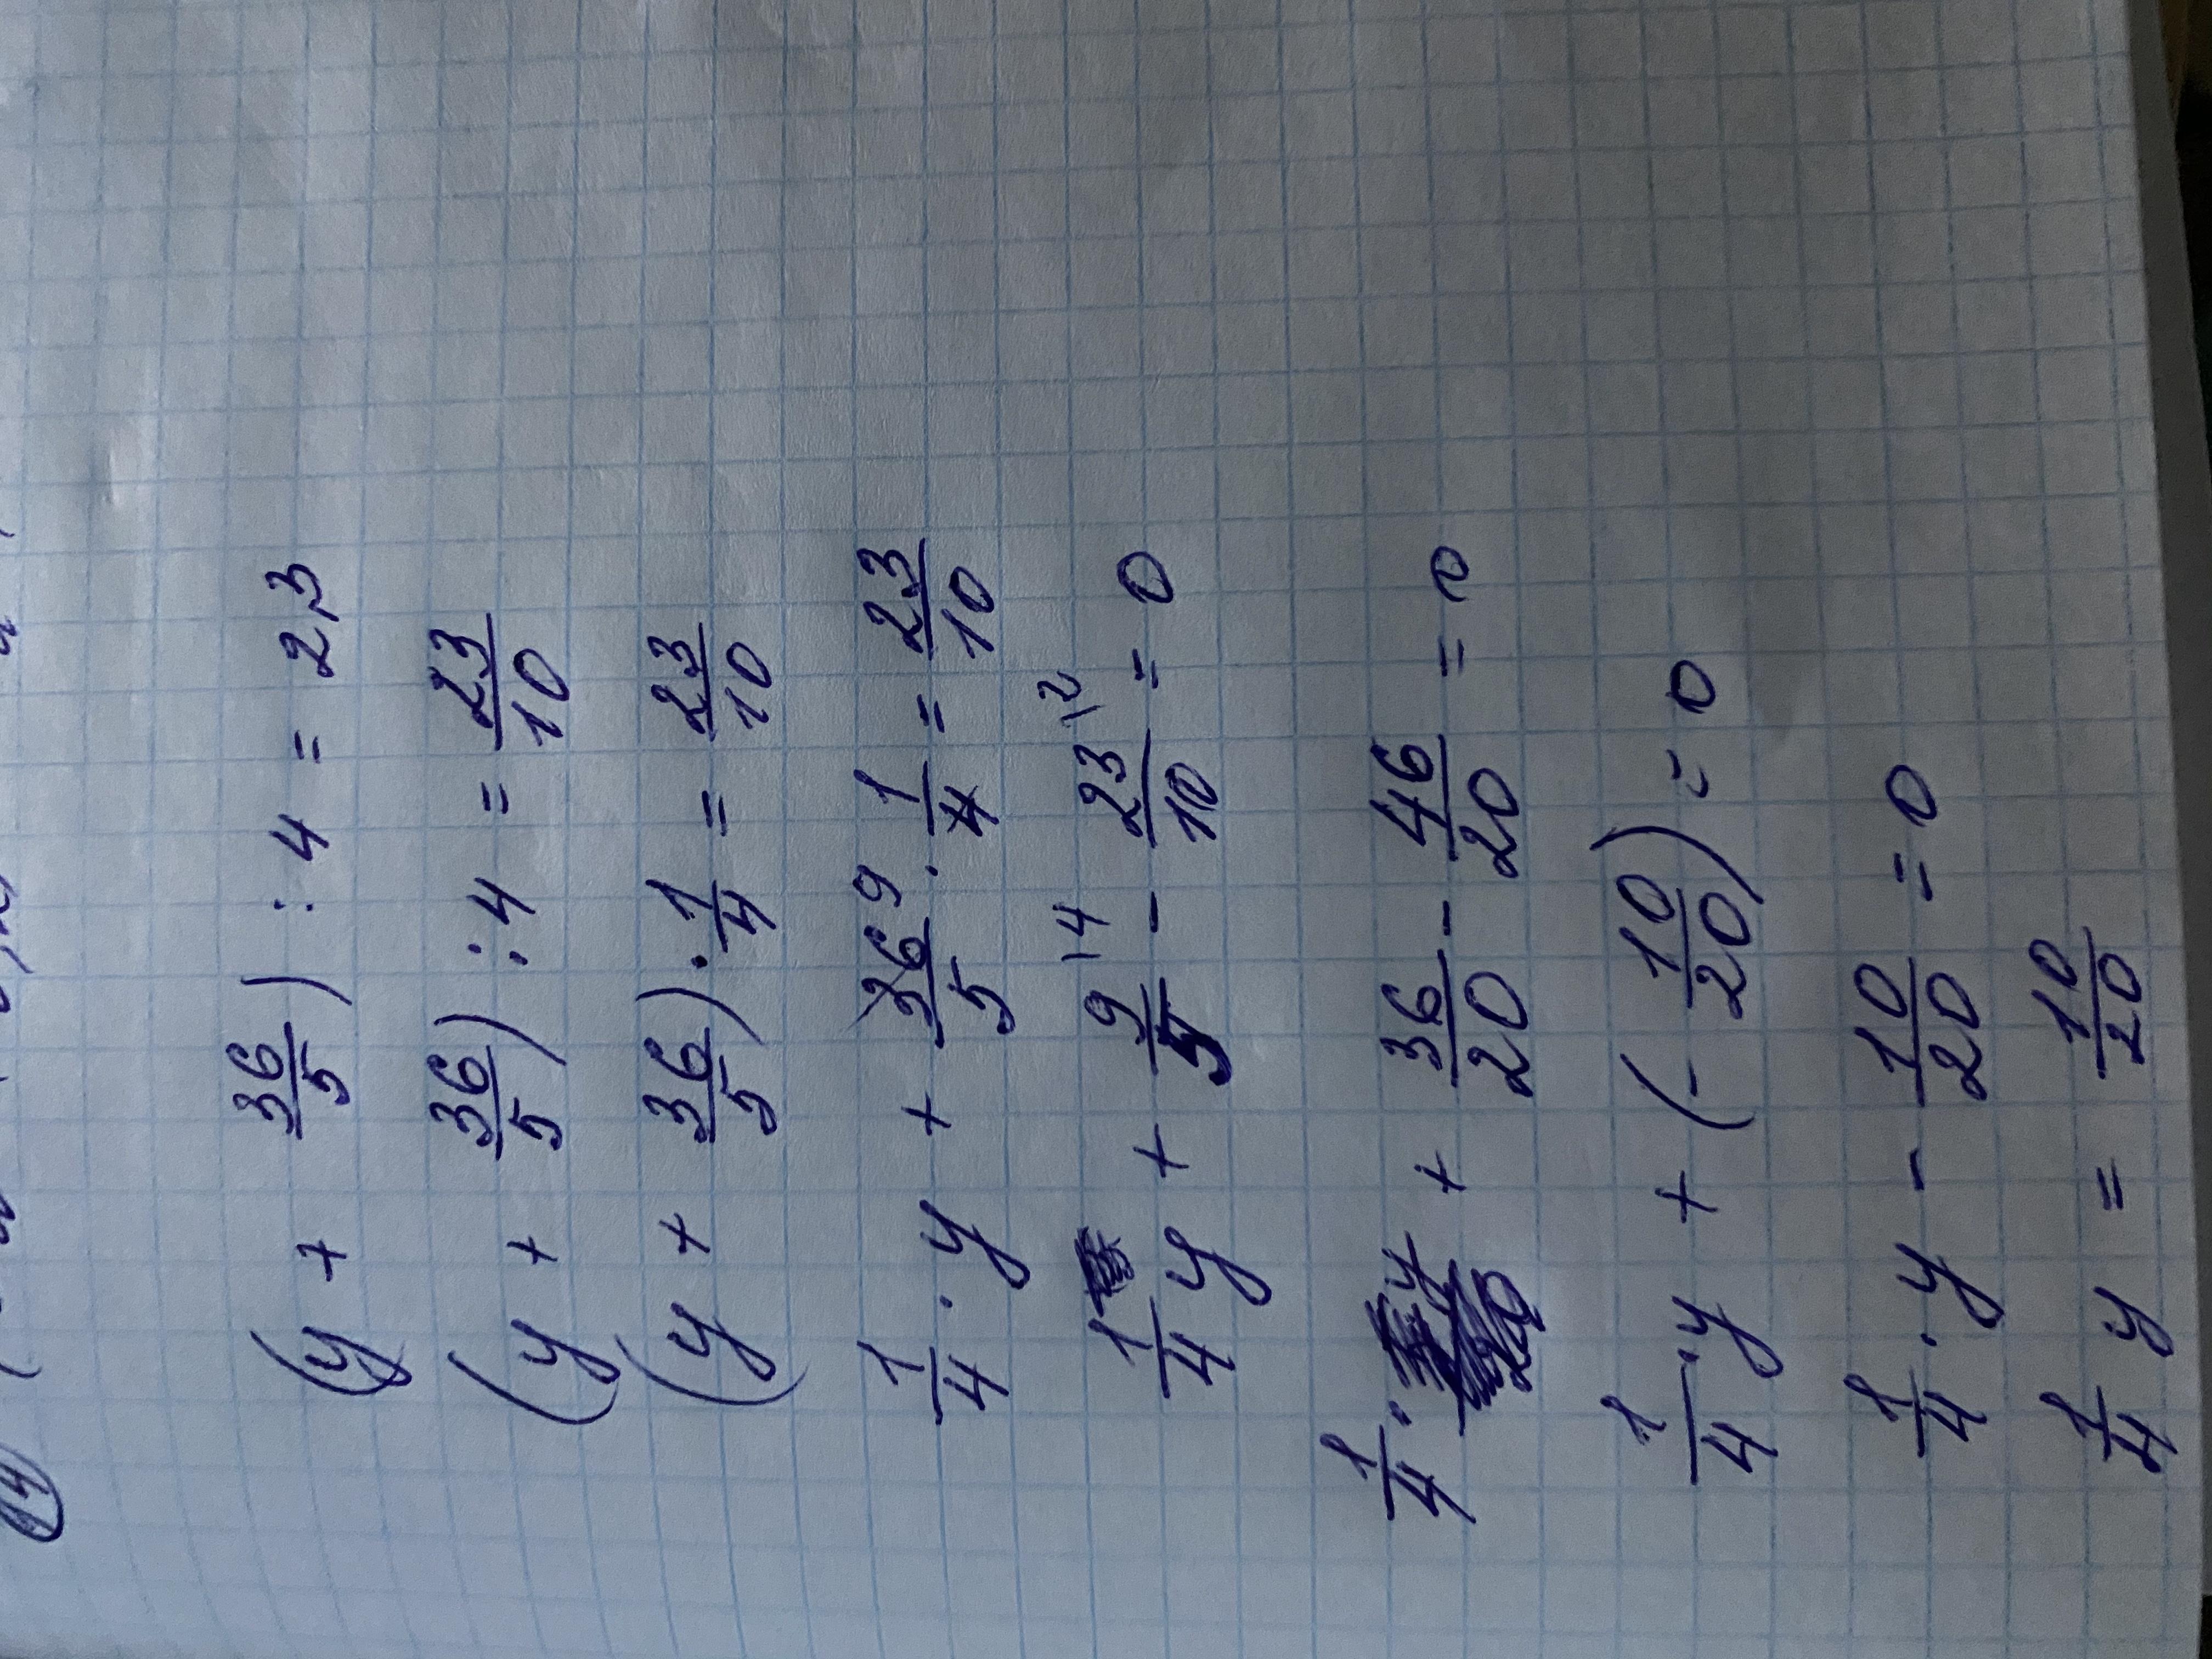 14
(y + 36/5) : 4 = 2,3
(y + 36/5) : 4 = 23/10
(y + 36/5) · 1/4 = 23/10
1/4 · y + 36/5 9 · 1/4 = 23/10
1/4 y + 9/5 \4 - 23/10 \2 = 0
1/4 · y + 36/20 - 46/20 = 0
1/4 · y + (- 10/20) = 0
1/4 · y - 10/20 = 0
1/4 y = 10/20